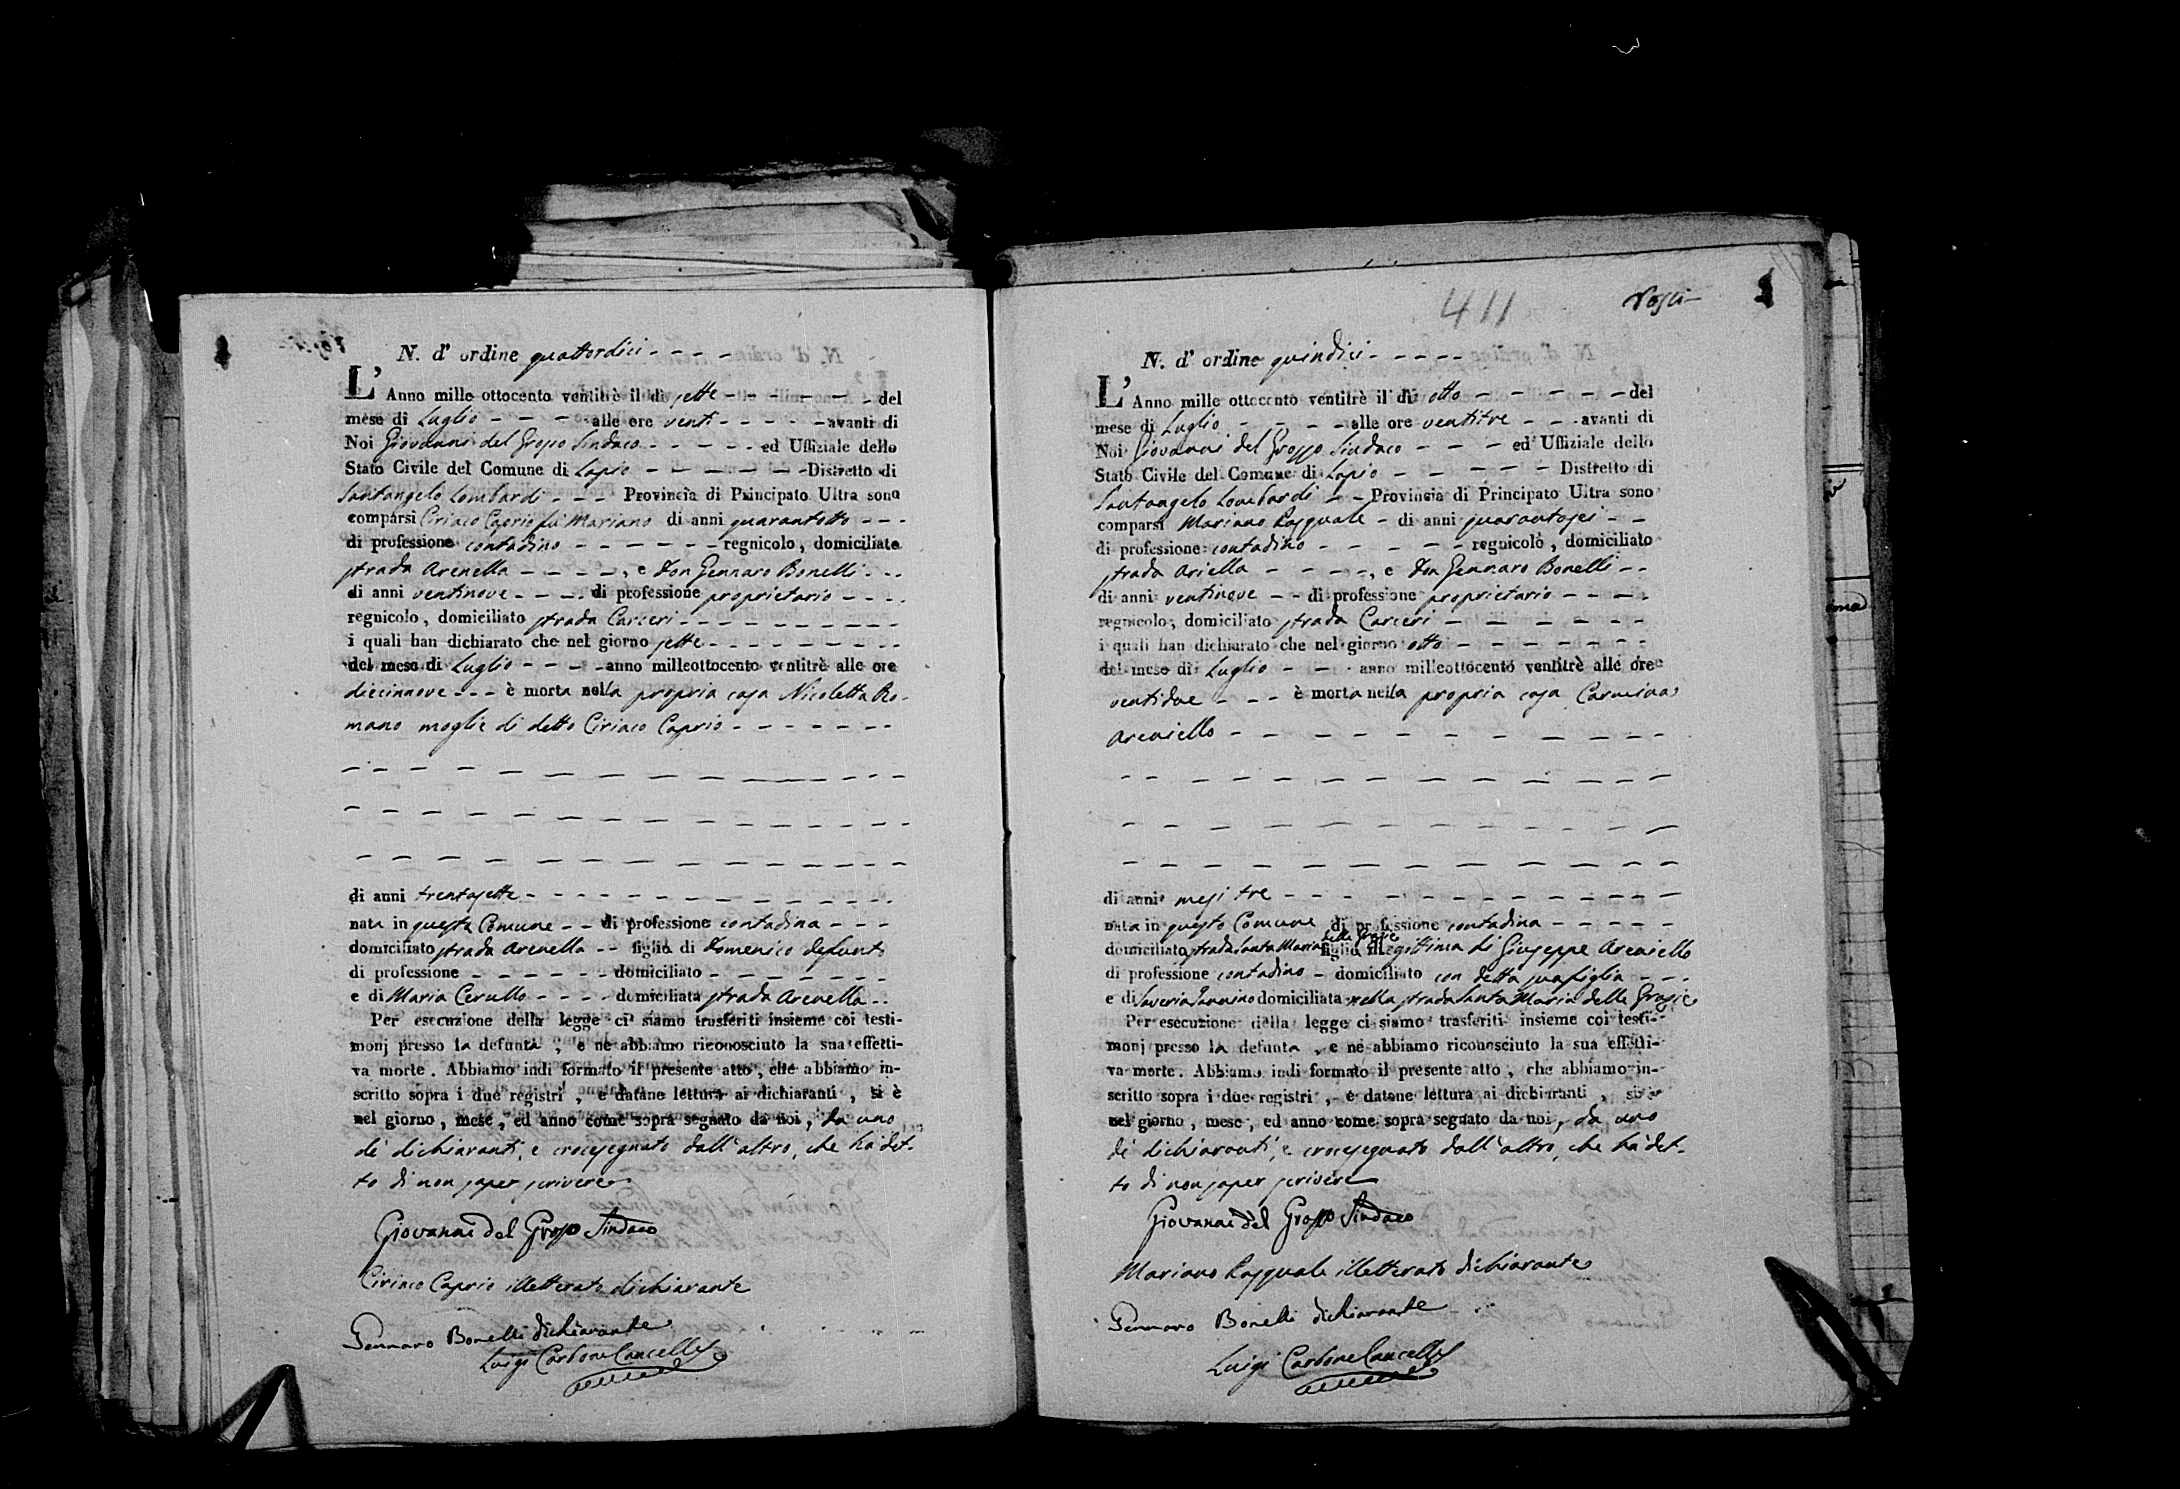 N. d' ordine quattordici
L'Anno mille ottocento ventitrè il dì sette del
mese di Luglio alle ore venti avanti di
Noi Giovanni del Grosso Sindaco ed Uffiziale dello
Stato Civile del Comune di Lapio Distretto di
Santangelo Lombardi Provincia di Principato Ultra sono
comparsi Ciriaco Caprio fù Mariano di anni quarantotto
di professione contadino regnicolo, domiciliato
strada Arenella, e Don Gennaro Bonelli
di anni ventinove di professione proprietario
regnicolo, domiciliato strada Carceri
i quali han dichiarato che nel giorno sette
del mese di Luglio anno milleottocento ventitrè alle ore
diecinnove è morta nella propria casa Nicoletta Ro-
mano moglie di detto Ciriaco Caprio
di anni trentasette
nata in questa Comune di professione contadina
domiciliato strada Arenella figlia di Domenico defunto
di professione domiciliato
e di Maria Cerullo domiciliata strada Arenella
Per esecuzione della legge ci siamo trasferiti insieme coi testi-
monj presso la defunta, e ne abbiamo riconosciuto la sua effetti-
va morte. Abbiamo indi formato il presente atto, che abbiamo in-
scritto sopra i due registri, e datane lettura ai dichiaranti, si è
nel giorno, mese, ed anno come sopra segnato da noi, da uno
dè dichiaranti, e crocesegnato dall'altro, che hà det-
to di non saper scrivere
Giovanni del Grosso Sindaco
Ciriaco Caprio illetterato dichiarante
Gennaro Bonelli dichiarante
Luigi Carbone Cancell
411
N. d' ordine quindici
L'Anno mille ottocento ventitrè il dì otto del
mese di Luglio alle ore ventitre avanti di
Noi Giovanni del Grosso Sindaco ed Uffiziale dello
Stato Civile del Comune di Lapio Distretto di
Santangelo Lombardi Provincia di Principato Ultra sono
comparsi Mariano Pasquale di anni quarantasei
di professione contadino regnicolo, domiciliato
strada Ariella, e Don Gennaro Bonelli
di anni ventinove di professione proprietario
regnicolo, domiciliato strada Carceri
i quali han dichiarato che nel giorno otto
del mese di Luglio anno milleottocento ventitrè alle ore
ventidue è morta nella propria casa Carmina
Areniello
di anni mesi tre
nata in questo Comune di professione contadina
domiciliato strada Santa Maria delle Grazie figlia illegittima di Giuseppe Areniello
di professione contadino domiciliato con detta sua figlia
e di Saveria domiciliata nella strada Santa Maria delle Grazie
Per esecuzione della legge ci siamo trasferiti insieme coi testi-
monj presso la defunta, e ne abbiamo riconosciuto la sua effetti-
va morte. Abbiamo indi formato il presente atto, che abbiamo in-
scritto sopra i due registri, e datane lettura ai dichiaranti, si è
nel giorno, mese, ed anno come sopra segnato da noi, da uno
dè dichiaranti, e crocesegnato dall'altro, che hà det-
to di non saper scrivere
Giovanni del Grosso Sindaco
Mariano Pasquale illetterato dichiarante
Gennaro Bonelli dichiarante
Luigi Carbone Cancell